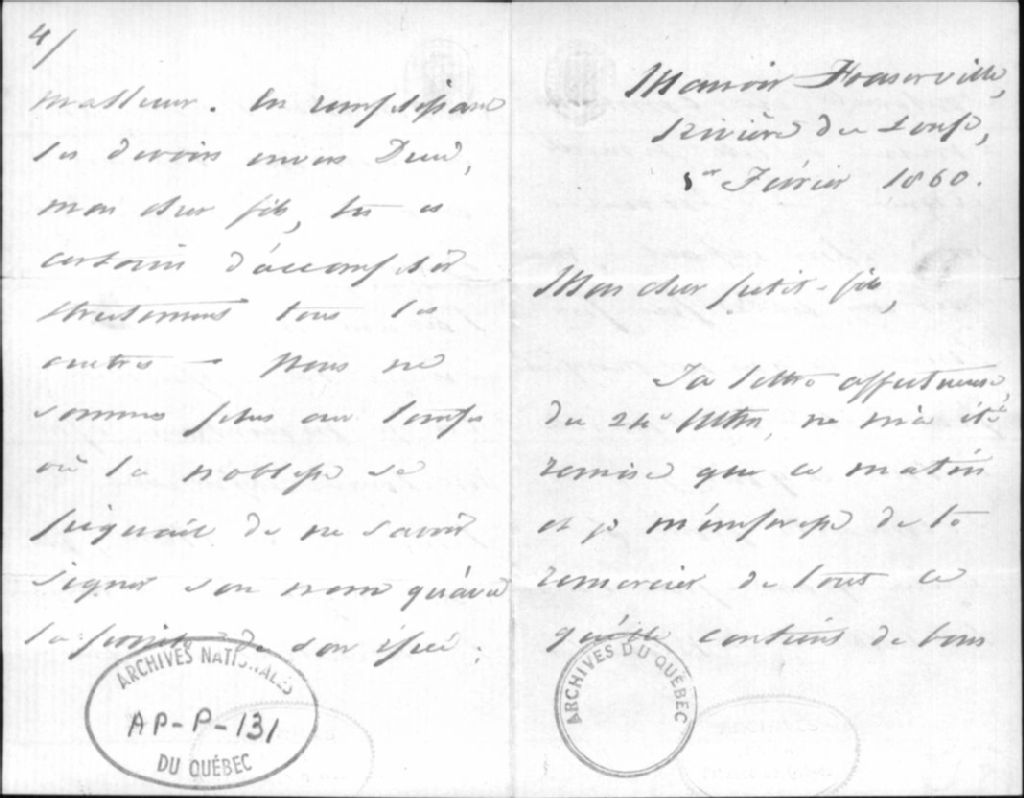 4/
malheur. En remplissant
tes devoirs envers Dieu,
mon cher fils, tu es
certain d'accomplir
strictement tous les
autres — Nous ne
sommes plus au temps
où la noblesse se
piquait de ne savoir
signer son nom qu'avec
la pointe de son épée.
ARCHIVES NATIONALES
AP-P-131
DU QUÉBEC
Manoir Fraserville,
Rivière du Loup,
1er Février 1860.
Mon cher petit-fils,
Ta lettre affectueuse,
du 24e ne m'a été
remise que ce matin
et je m'empresse de te
remercier de tout ce
qu'elle contient de bon
ARCHIVES DU QUÉBEC